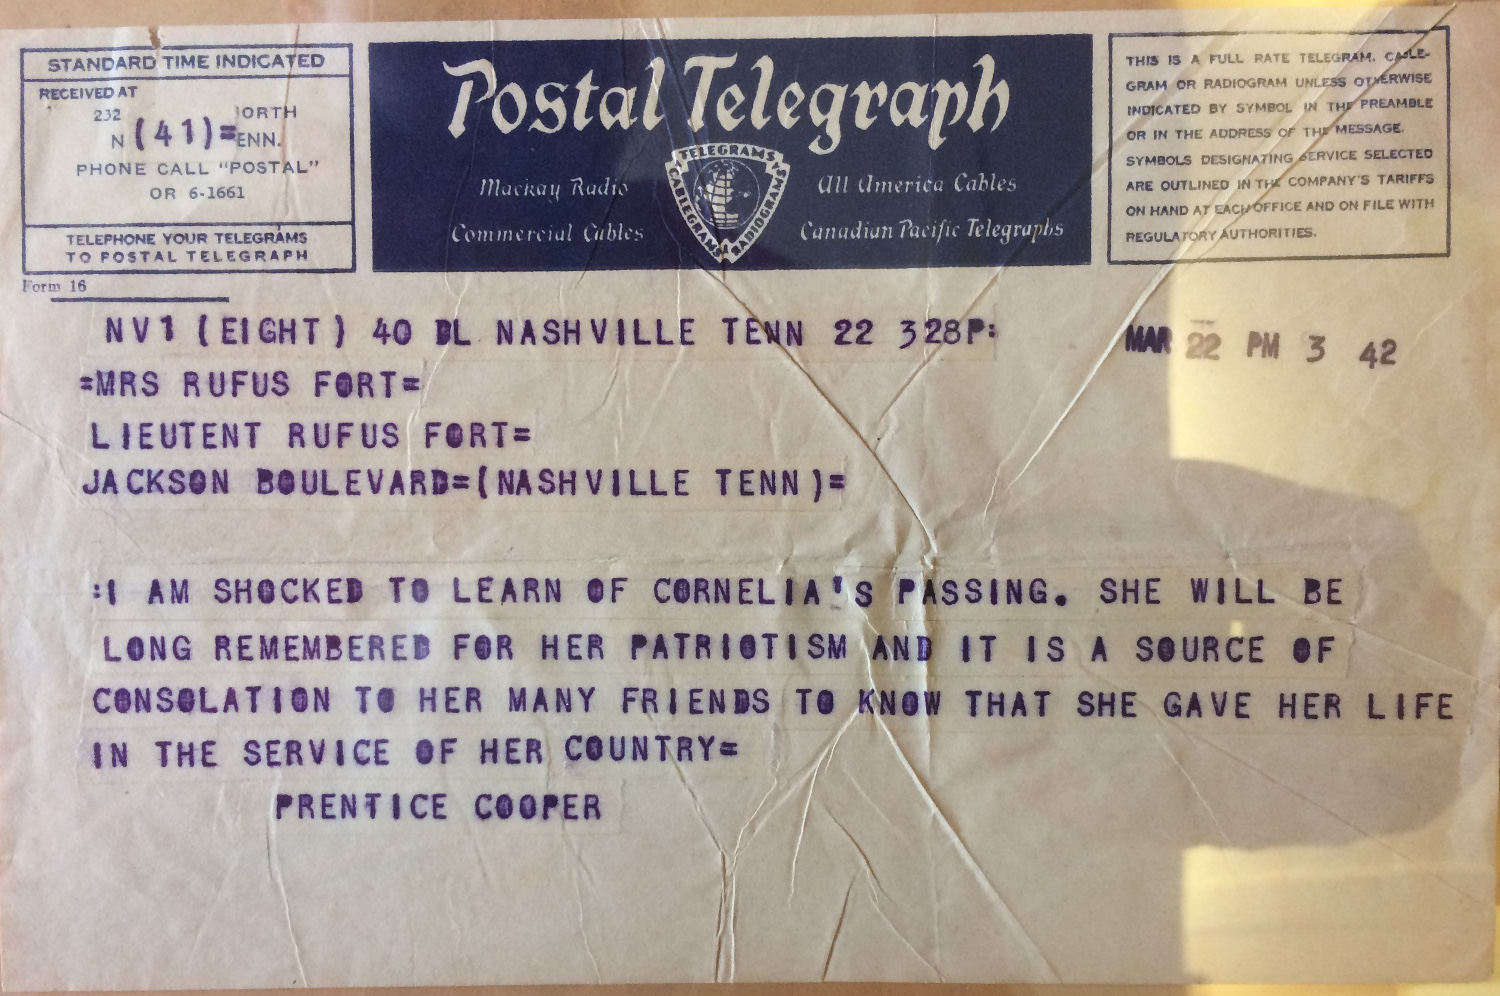 STANDARD TIME INDICATED
RECEIVED AT
232 ORTH
N (41)=ENN.
PHONE CALL "POSTAL"
OR 6-1661
TELEPHONE YOUR TELEGRAMS
TO POSTAL TELEGRAPH
Form 16
Postal Telegraph
Mackay Radio
Commercial Cables
TELEGRAMS
CABLEGRAMS
RADIOGRAMS
All America Cables
Canadian Pacific Telegraphs
THIS IS A FULL RATE TELEGRAM, CABLE-
GRAM OR RADIOGRAM UNLESS OTHERWISE
INDICATED BY SYMBOL IN THE PREAMBLE
OR IN THE ADDRESS OF THE MESSAGE.
SYMBOLS DESIGNATING SERVICE SELECTED
ARE OUTLINED IN THE COMPANY'S TARIFFS
ON HAND AT EACH OFFICE AND ON FILE WITH
REGULATORY AUTHORITIES.
NV1 (EIGHT) 40 DL NASHVILLE TENN 22 328P:
MAR 22 PM 3 42
=MRS RUFUS FORT=
LIEUTENT RUFUS FORT=
JACKSON BOULEVARD=(NASHVILLE TENN)=
:I AM SHOCKED TO LEARN OF CORNELIA'S PASSING. SHE WILL BE
LONG REMEMBERED FOR HER PATRIOTISM AND IT IS A SOURCE OF
CONSOLATION TO HER MANY FRIENDS TO KNOW THAT SHE GAVE HER LIFE
IN THE SERVICE OF HER COUNTRY=
PRENTICE COOPER